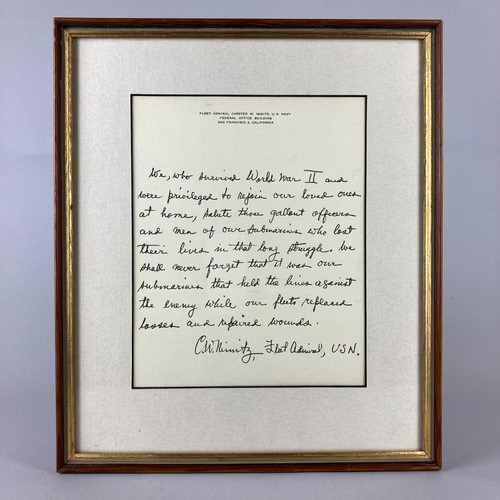 FLEET ADMIRAL CHESTER W. NIMITZ, U.S. NAVY
FEDERAL OFFICE BUILDING
SAN FRANCISCO 2, CALIFORNIA
We, who survived World War II and
were privileged to rejoin our loved ones
at home, salute those gallant officers
and men of our submarines who lost
their lives in that long struggle. We
shall never forget that it was our
submarines that held the lines against
the enemy while our fleets replaced
losses and repaired wounds.
C.W. Nimitz, Fleet Admiral, USN.